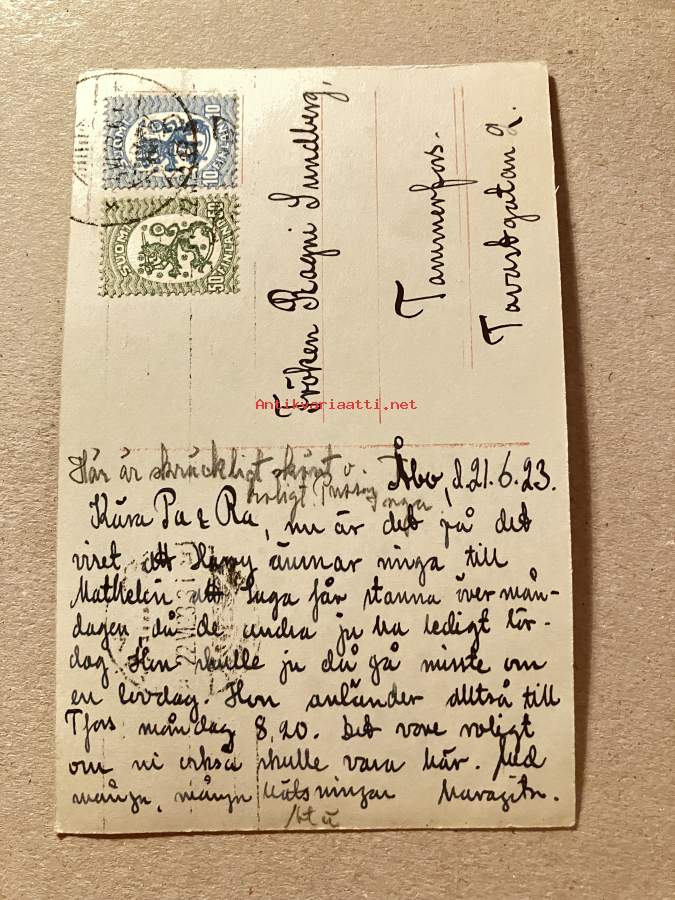 SUOMI
10
10
FINLAND
SUOMI
50
50
FINLAND
Fröken Ragni Sundberg,
Tammerfors.
Tavastgatan 2.
Antikvariaatti.net
Här är skräckligt skönt o.
roligt. Pussar
Åbo, d. 21.6.23.
Kära Pa & Ra, nu är det på det
viset att Harry ämnar ringa till
att Inga får stanna över mån-
dagen, då de andra ju ha ledigt lör-
dag. Hon skulle ju då gå miste om
en lovdag. Hon anländer alltså till
Tfors måndag 8,20. Det vore roligt
om ni också skulle vara här. Med
många, många hälsningar